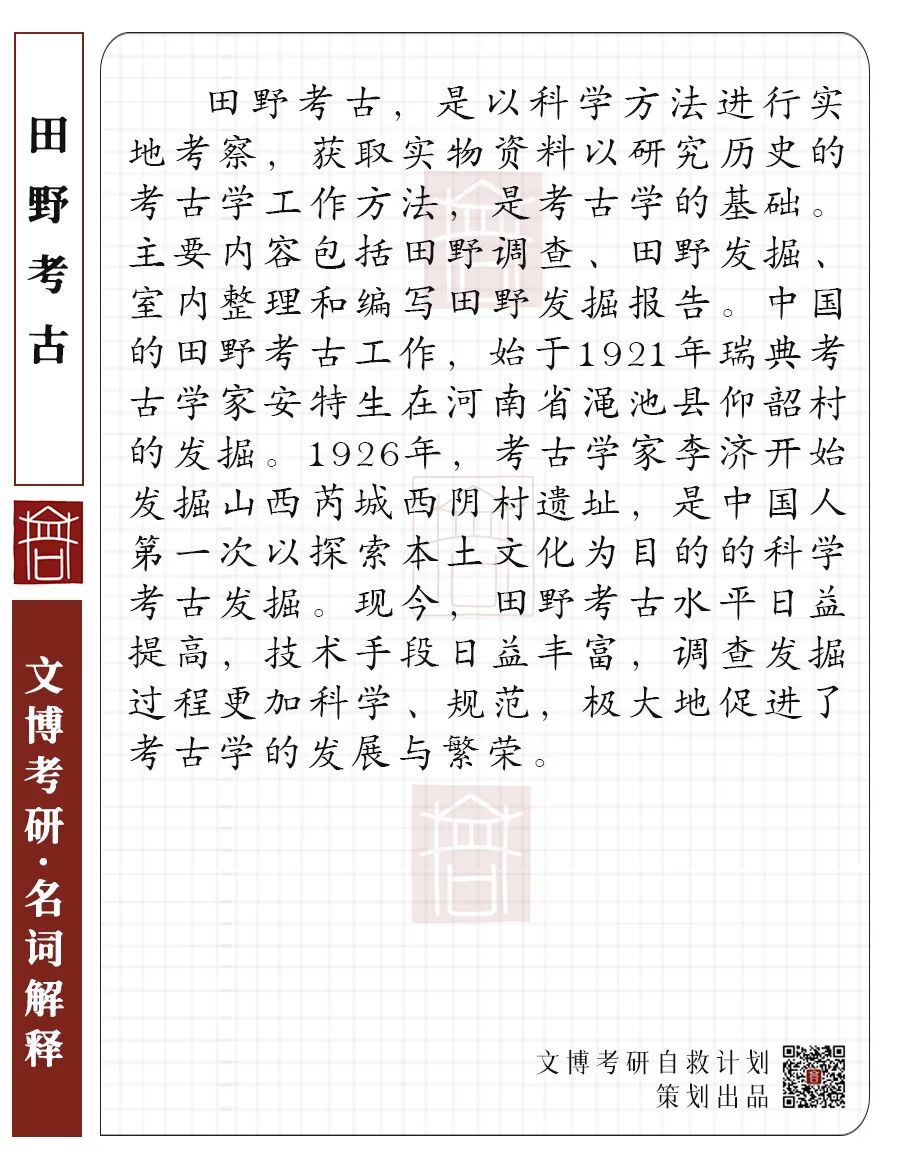 田野考古
文博考研·名词解释
田野考古，是以科学方法进行实
地考察，获取实物资料以研究历史的
考古学工作方法，是考古学的基础。
主要内容包括田野调查、田野发掘、
室内整理和编写田野发掘报告。中国
的田野考古工作，始于1921年瑞典考
古学家安特生在河南省渑池县仰韶村
的发掘。1926年，考古学家李济开始
发掘山西芮城西阴村遗址，是中国人
第一次以探索本土文化为目的的科学
考古发掘。现今，田野考古水平日益
提高，技术手段日益丰富，调查发掘
过程更加科学、规范，极大地促进了
考古学的发展与繁荣。
文博考研自救计划
策划出品